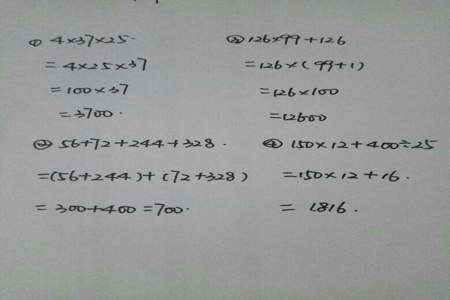 ① 4×37×25.
=4×25×37
=100×37
=3700.
② 126×99+126
=126×(99+1)
=126×100
=12600
③ 56+72+244+328.
=(56+244)+(72+328)
=300+400=700.
④ 150×12+400÷25
=150×12+16.
= 1816.